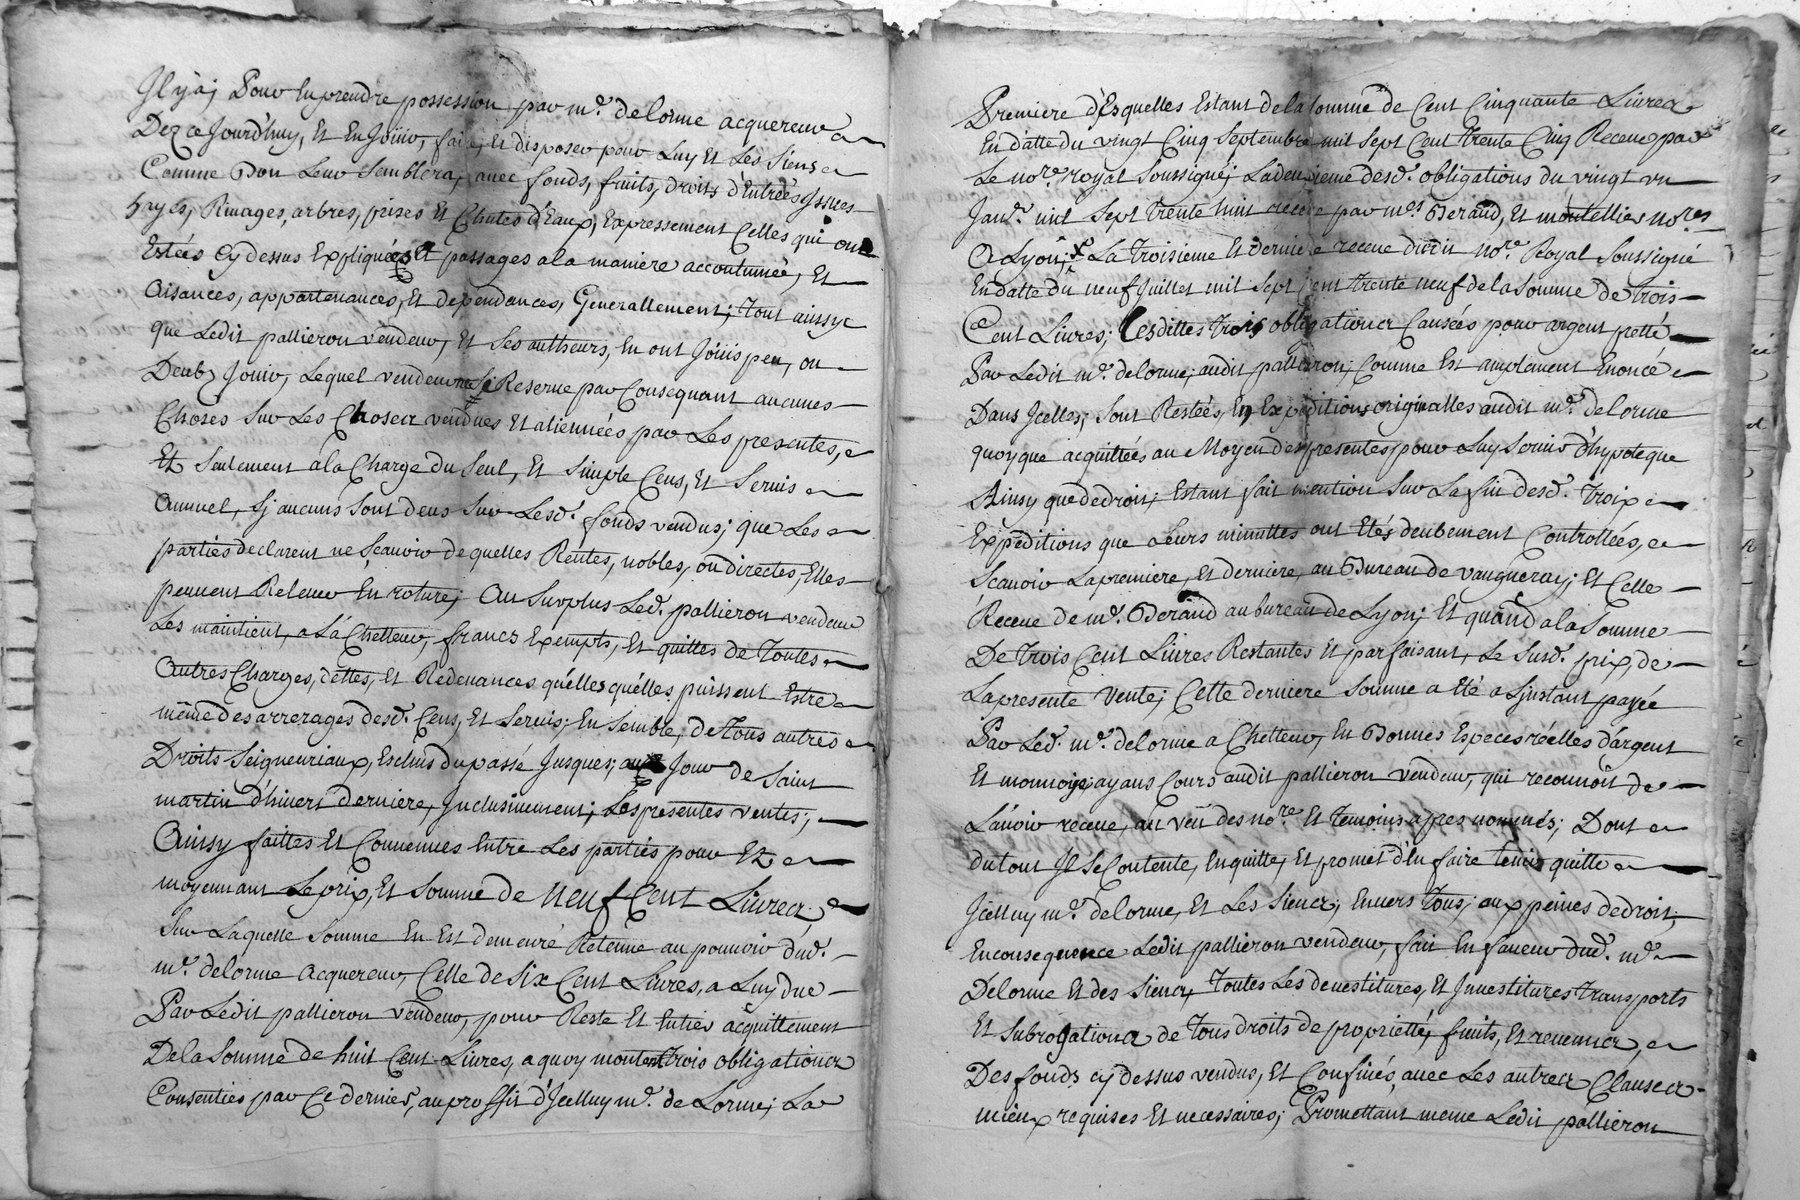 Il y a; Pour En prendre possession par mr. delorme acquereur
Dez ce Jourd'huy, Et En Joüir, faire, Et disposer pour Luy Et Les Siens
Comme Bon Leur Semblera, avec fonds, fruits, droits d'Entrées Issües
suyts, Rivages, arbres, prises Et Chutes d'Eaux, Expressement Celles qui ont
Estées Cy dessus Expliquées Et passages a la maniere accoutumée, Et
Aisances, appartenances, Et dependances, Generallement; Tout ainsy
que Ledit pallieron vendeur, Et Ses autheurs, En ont Joüis peu, ou
Deub Jouir, Lequel vendeur ne Se Reserve par Consequant aucunes
Choses Sur Les Choses vendues Et aliennées par Les presentes,
Et Seulement a la Charge du Seul, Et Simple Cens, Et Servis
Annuel, Sj aucuns Sont deus Sur Lesd. fonds vendus; que Les
parties declarent ne Scauoir de quelles Rentes, nobles, ou directes, Elles
peuuent Releuer En roture; Au Surplus Led. pallieron vendeur
Les maintient, a La Chetteur, francs Exempts, Et quittes de Toutes
Autres Charges, dettes, Et Redeuances qu'elles qu'elles puissent Estre
même des arrerages desd. Cens, Et Servis; En Semble, de Tous autres
Droits Seigneuriaux, Eschus du passé Jusques; au Jour de Saint
martin d'hivert derniere, Inclusiuement; Les presentes ventes;
Ainsy faittes Et Conuenues Entre Les parties pour Et
moyennant Le prix, Et Somme de neuf Cent Liures
Sur Laquelle Somme En Est demeuré Retenue au pouuoir dud.
mr. delorme Acquereur, Celle de Six Cent Liures, a Luy due
Par Ledit pallieron vendeur, pour Reste Et Entier acquittement
De la Somme de huit Cent Liures, a quoy montent trois obligations
Consenties par Ce dernier, au proffit d'Icelluy mr. de Lorme; La
Premiere d'Esquelles Estant de la Somme de Cent Cinquante Liures
En datte du vingt Cinq Septembre mil Sept Cent trente Cinq Receue par
Le nore. royal Soussigné; La deuxieme desd. obligations du vingt un
Janr. mil Sept trente huit receue par mes Berand, Et montellier nores
A Lyon; La Troisieme Et derniere receue dudit nore Royal Soussigné
En datte du neuf Juillet mil Sept Cent trente neuf de la Somme de trois
Cent Liures; Lesdittes trois obligations Causées pour argent pretté
Par Ledit mr. delorme, audit pallieron; Comme Est amplement Enoncé
Dans Jcelles; Sont Restées En Expeditions originalles audit mr. delorme
quoyque acquittées au Moyen des presentes, pour Luy Seruir d'hypoteque
Ainsy que de droit; Estant fait mention Sur La fin desd. Troix
Expéditions que Leurs minuttes ont Etés deubement Controllées,
Scauoir La premiere, Et derniere, au Bureau de vaugneray; Et Celle
Receue de mr. Berand au bureau de Lyon; Et quand a la Somme
De trois Cent Liures Restantes Et parfaisant, Le Susd. prix, de
La presente Vente; Cette derniere Somme a Eté a Sinstant payée
Par Led. mr. delorme a Chetteur, En Bonnes Especes réelles d'argent
Et monnoyes ayans Cours audit pallieron vendeur, qui reconnoit de
L'auoir receue, au vëu des nore Et Temoins apres nommés; Dont
du tout Jl Se Contente, En quitte, Et promet d'En faire tenir quitte
Jcelluy mr. delorme, Et Les Siens, Enuers Tous, aux peines de droit,
En consequence Ledit pallieron vendeur, fait En faueur dud. mr.
Delorme Et des Siens, Toutes Les deuestitures, Et Inuestitures Transports
Et Subrogations de Tous droits de proprietté, fruits, Et reuenus,
Des fonds cy dessus vendus, Et Confinés, auec Les autres Clauses
mieux requises Et necessaires; Promettant meme Ledit pallieron